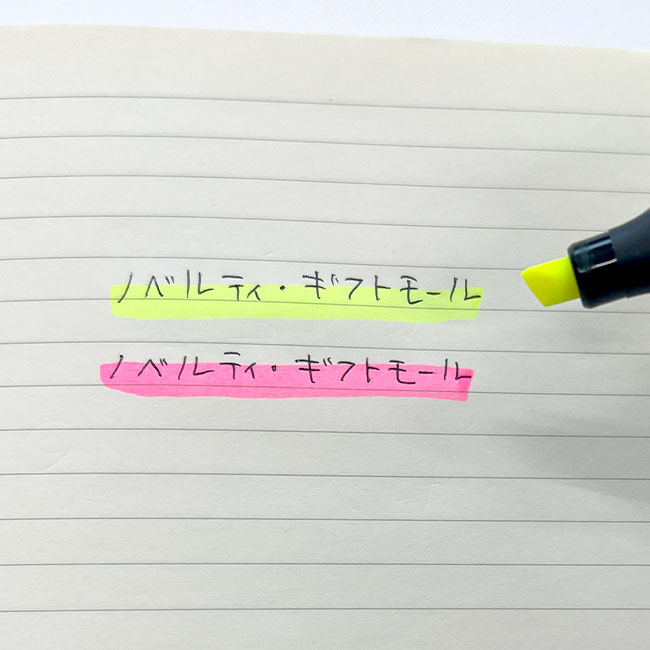 ノベルティ・ギフトモール
ノベルティ・ギフトモール